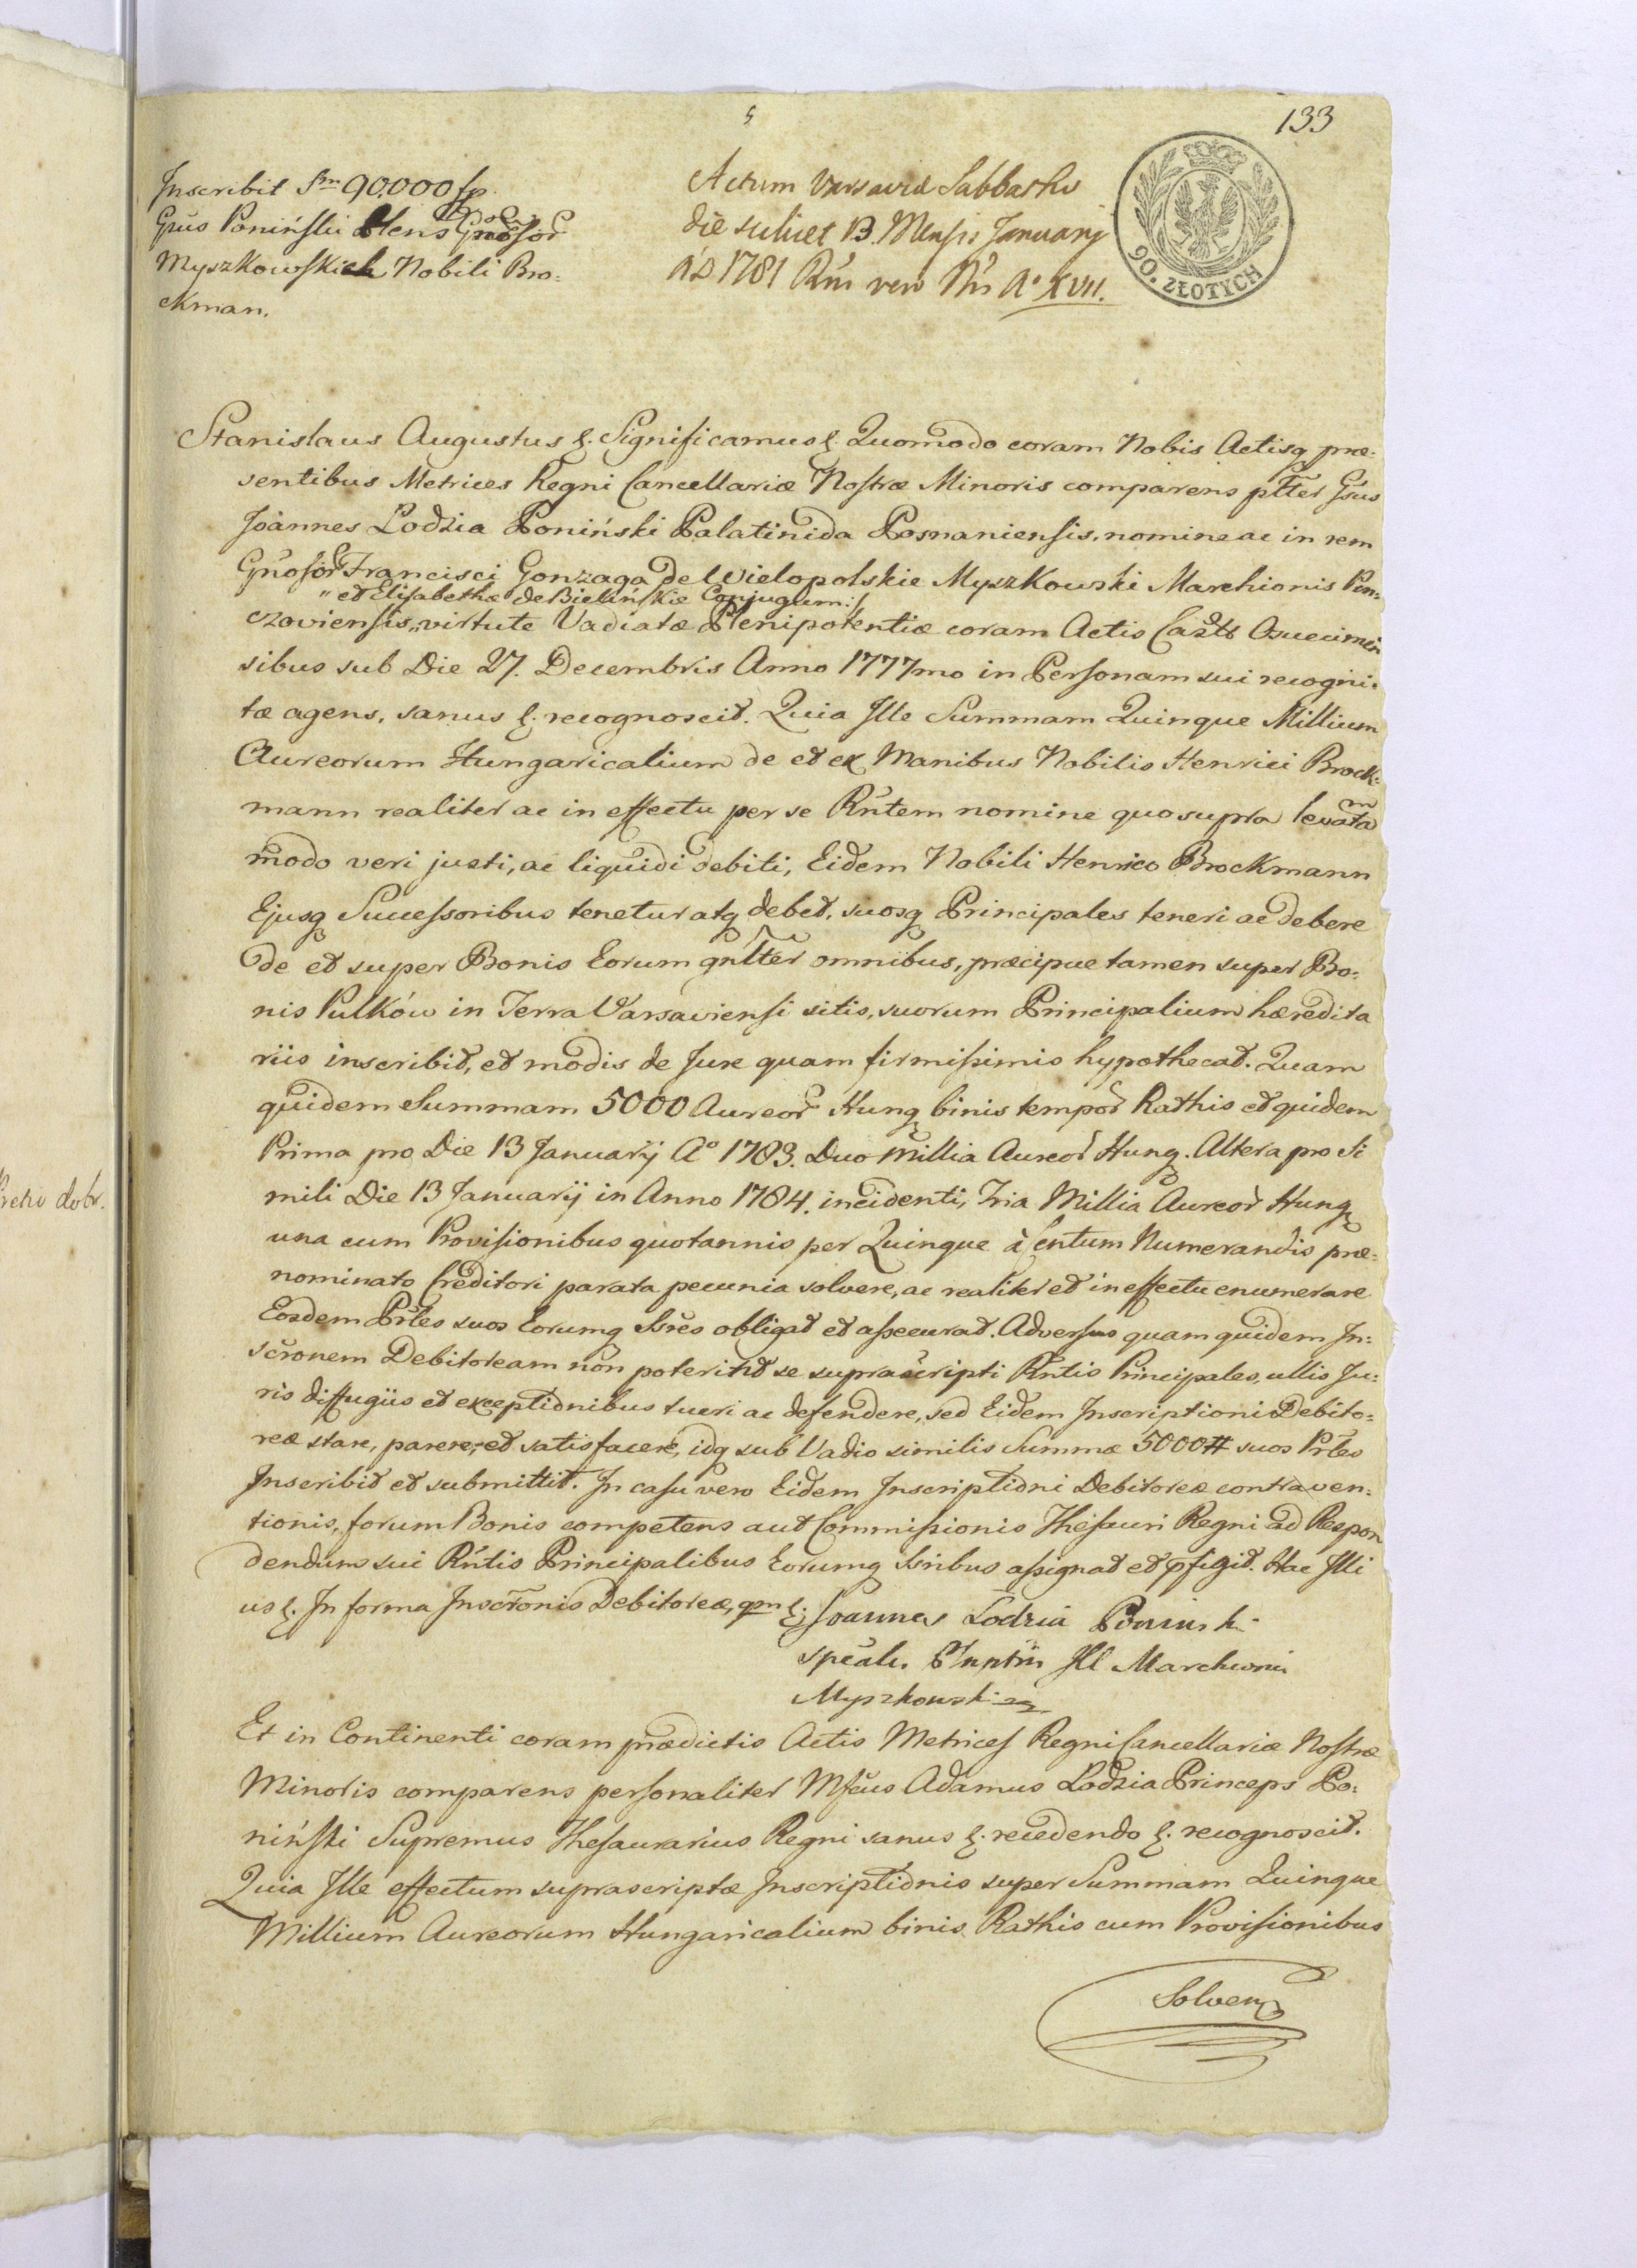 133
Inscribit Sm 90.000 fp.
Gñus Poniński Plens Gnosor
Myszkowskich Nobili Bro-
ckman.
Actum Varsaviæ Sabbatho
die scilicet 13. Mensis Januarij
A D 1781 Rñi vero Nri A° XVII.
90. ZŁOTYCH
Stanislaus Augustus &. Significamus &. Quomodo coram Nobis Actisq præ-
sentibus Metrices Regni Cancellariæ Nostræ Minoris comparens pltter Gsus
Joannes Lodzia Poniński Palatinida Posnaniensis, nomine ac in rem
Gñosor Francisci Gonzaga de Wielopolskie Myszkowski Marchionis Pin-
" et Elisabethæ de Bielińskie Conjugum :/
czoviensis, " virtute Vadiatæ Plenipotentiæ coram Actis Castr Osuecimen
sibus sub Die 27. Decembris Anno 1777mo in Personam sui recogni-
tæ agens, sanus &. recognoscit. Quia Ille Summam Quinque Millium
Aureorum Hungaricalium de et ex Manibus Nobilis Henrici Brock-
mann realiter ac in effectu per se Rñtem nomine quo supra levatam
modo veri justi, ac liquidi debiti, Eidem Nobili Henrico Brockmann
Ejusq Successoribus tenetur atq debet, suosq Principales teneri ac debere
de et super Bonis Eorum gnltter omnibus, præcipue tamen super Bo-
nis Pulków in Terra Varsaviensi sitis, suorum Principalium hæredita
riis inscribit, et modis de Jure quam firmissimis hypothecat. Quam
quidem Summam 5000 Aureor Hung binis tempor Rathis et quidem
Prima pro Die 13 Januarij A° 1783. Duo Millia Aureor Hung. Altera pro Si
mili Die 13 Januarij in Anno 1784. incidenti, Tria Millia Aureor Hung
una cum Provisionibus quotannis per Quinque à Centum Numerandis præ-
nominato Creditori parata pecunia solvere, ac realiter et in effectu enumerare
Eosdem Prles suos Eorumq Ssres obligat et assecurat. Adversus quam quidem In-
scronem Debitoream non poterint se suprascripti Rntis Principales, ullis Ju-
ris diffugiis et exceptionibus tueri ac defendere, sed Eidem Inscriptioni Debito-
reæ stare, parere, et satisfacere, idq sub Vadio similis Summæ 5000 # suos Prles
Inscribit et submittit. In casu vero Eidem Inscriptioni Debitoreæ contraven-
tionis, forum Bonis competens aut Commissionis Thesauri Regni ad Respon
dendum sui Rntis Principalibus Eorumq Ssribus assignat et pfigit. Hac Illi
us &. In forma Inscronis Debitoreæ, qm &. Joannes Lodzia Poninski
speãlis Plnptns Ill Marchionis
Myszkowski
Et in Continenti coram prædictis Actis Metrices Regni Cancellariæ Nostræ
Minoris comparens personaliter Mfcus Adamus Lodzia Princeps Po-
niński Supremus Thesaurarius Regni sanus &. recedendo &. recognoscit.
Quia Ille effectum suprascriptæ Inscriptionis super Summam Quinque
Millium Aureorum Hungaricalium binis Rathis cum Provisionibus
Solven